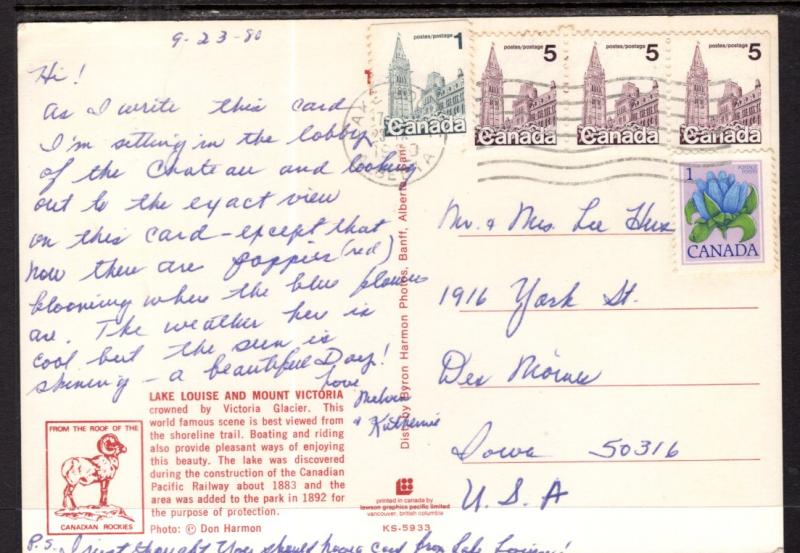 9-23-80
Hi!
As I write this card
I'm sitting in the lobby
of the Chateau and looking
out to the exact view
on this card-except that
now there are poppies (red)
blooming where the blue flowers
are. The weather here is
cool but the sun is
shining - a beautiful Day!
Love
Melvin
& Katherine
LAKE LOUISE AND MOUNT VICTORIA
crowned by Victoria Glacier. This
world famous scene is best viewed from
the shoreline trail. Boating and riding
also provide pleasant ways of enjoying
this beauty. The lake was discovered
during the construction of the Canadian
Pacific Railway about 1883 and the
area was added to the park in 1892 for
the purpose of protection.
Photo: © Don Harmon
FROM THE ROOF OF THE
CANADIAN ROCKIES
P.S. I just thought you should have a card from Lake Louise!
Dist. by Byron Harmon Photos, Banff, Alberta,
printed in canada by
lawson graphics pacific limited
vancouver, british columbia
KS-5933
postes/postage 1
Canada
postes/postage 5
Canada
postes/postage 5
Canada
postes/postage 5
Canada
1 POSTAGE POSTES
CANADA
Mr. & Mrs. Lee
1916 York St.
Des Moines
Iowa 50316
U.S.A